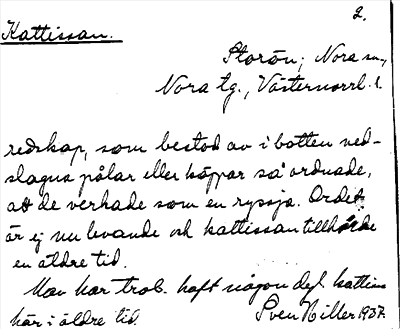 2.
Kattissan.
Storön, Nora sn.,
Nora tg., Västernorrl. l.
redskap, som bestod av i botten ned-
slagna pålar eller käppar så ordnade,
att de verkade som en ryssja. Ordet
är ej nu levande och kattissan tillhörde
en äldre tid.
Man har trol. haft någon del kattissa
här i äldre tid. Sven Hiller 1937.